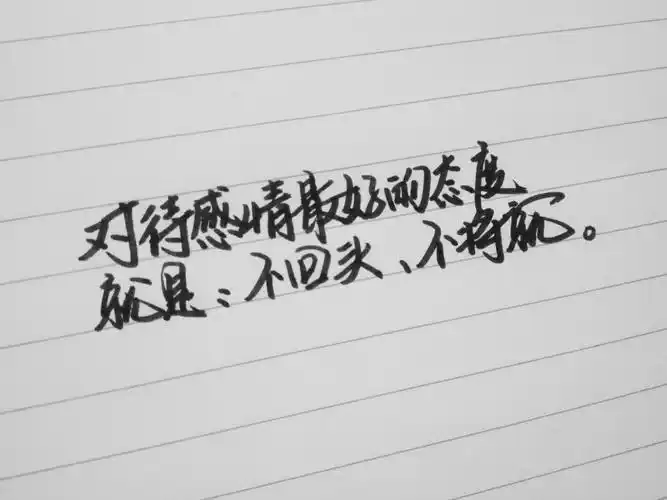 对待感情最好的态度
就是：不回头、不将就。